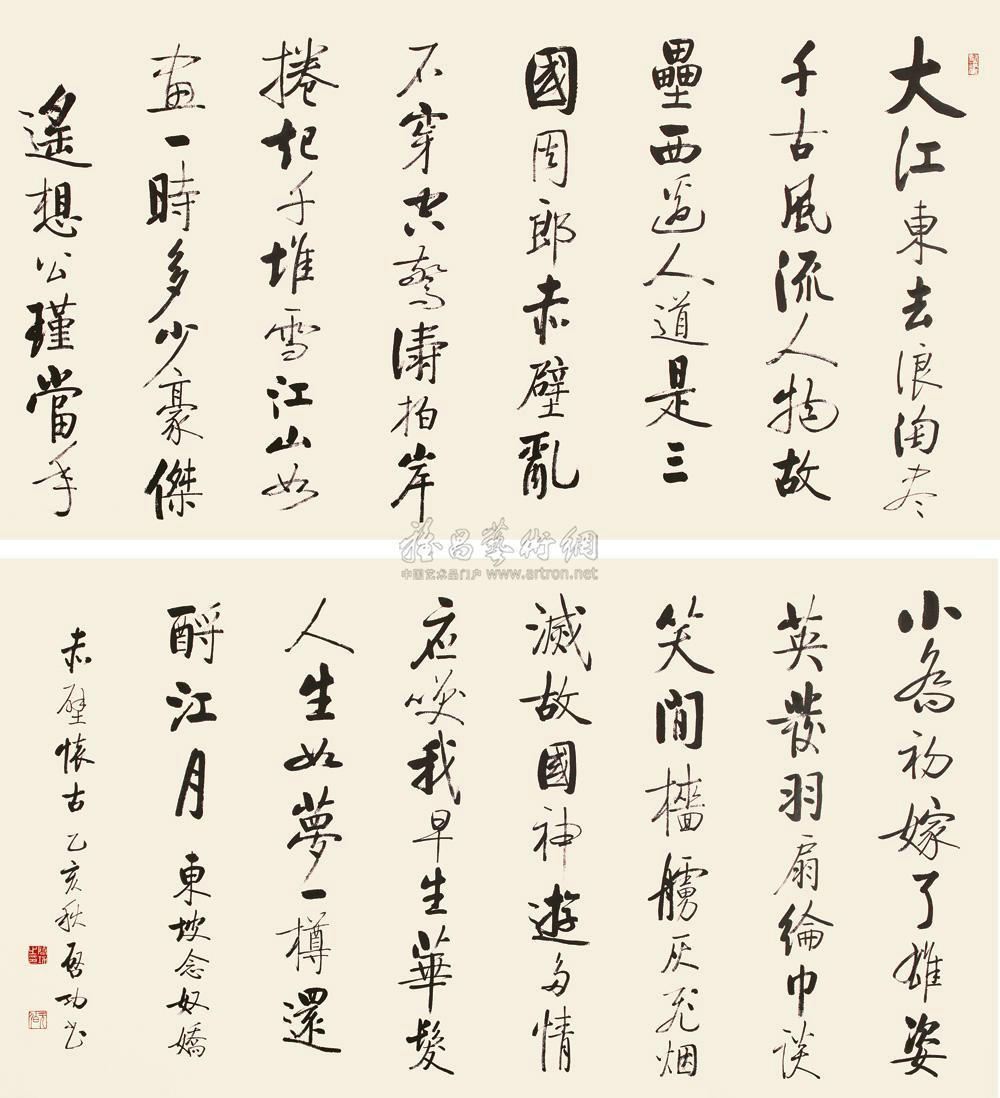 大江東去浪淘盡
千古風流人物故
壘西邊人道是三
國周郎赤壁亂
石穿空驚濤拍岸
捲起千堆雪江山如
畫一時多少豪傑
遙想公瑾當年
小喬初嫁了雄姿
英發羽扇綸巾談
笑間檣艣灰飛烟
滅故國神遊多情
应咲我早生華髮
人生如夢一樽還
酹江月 東坡念奴嬌
赤壁懷古 乙亥秋 啓功书
雅昌藝術網
中国艺术品门户 www.artron.net